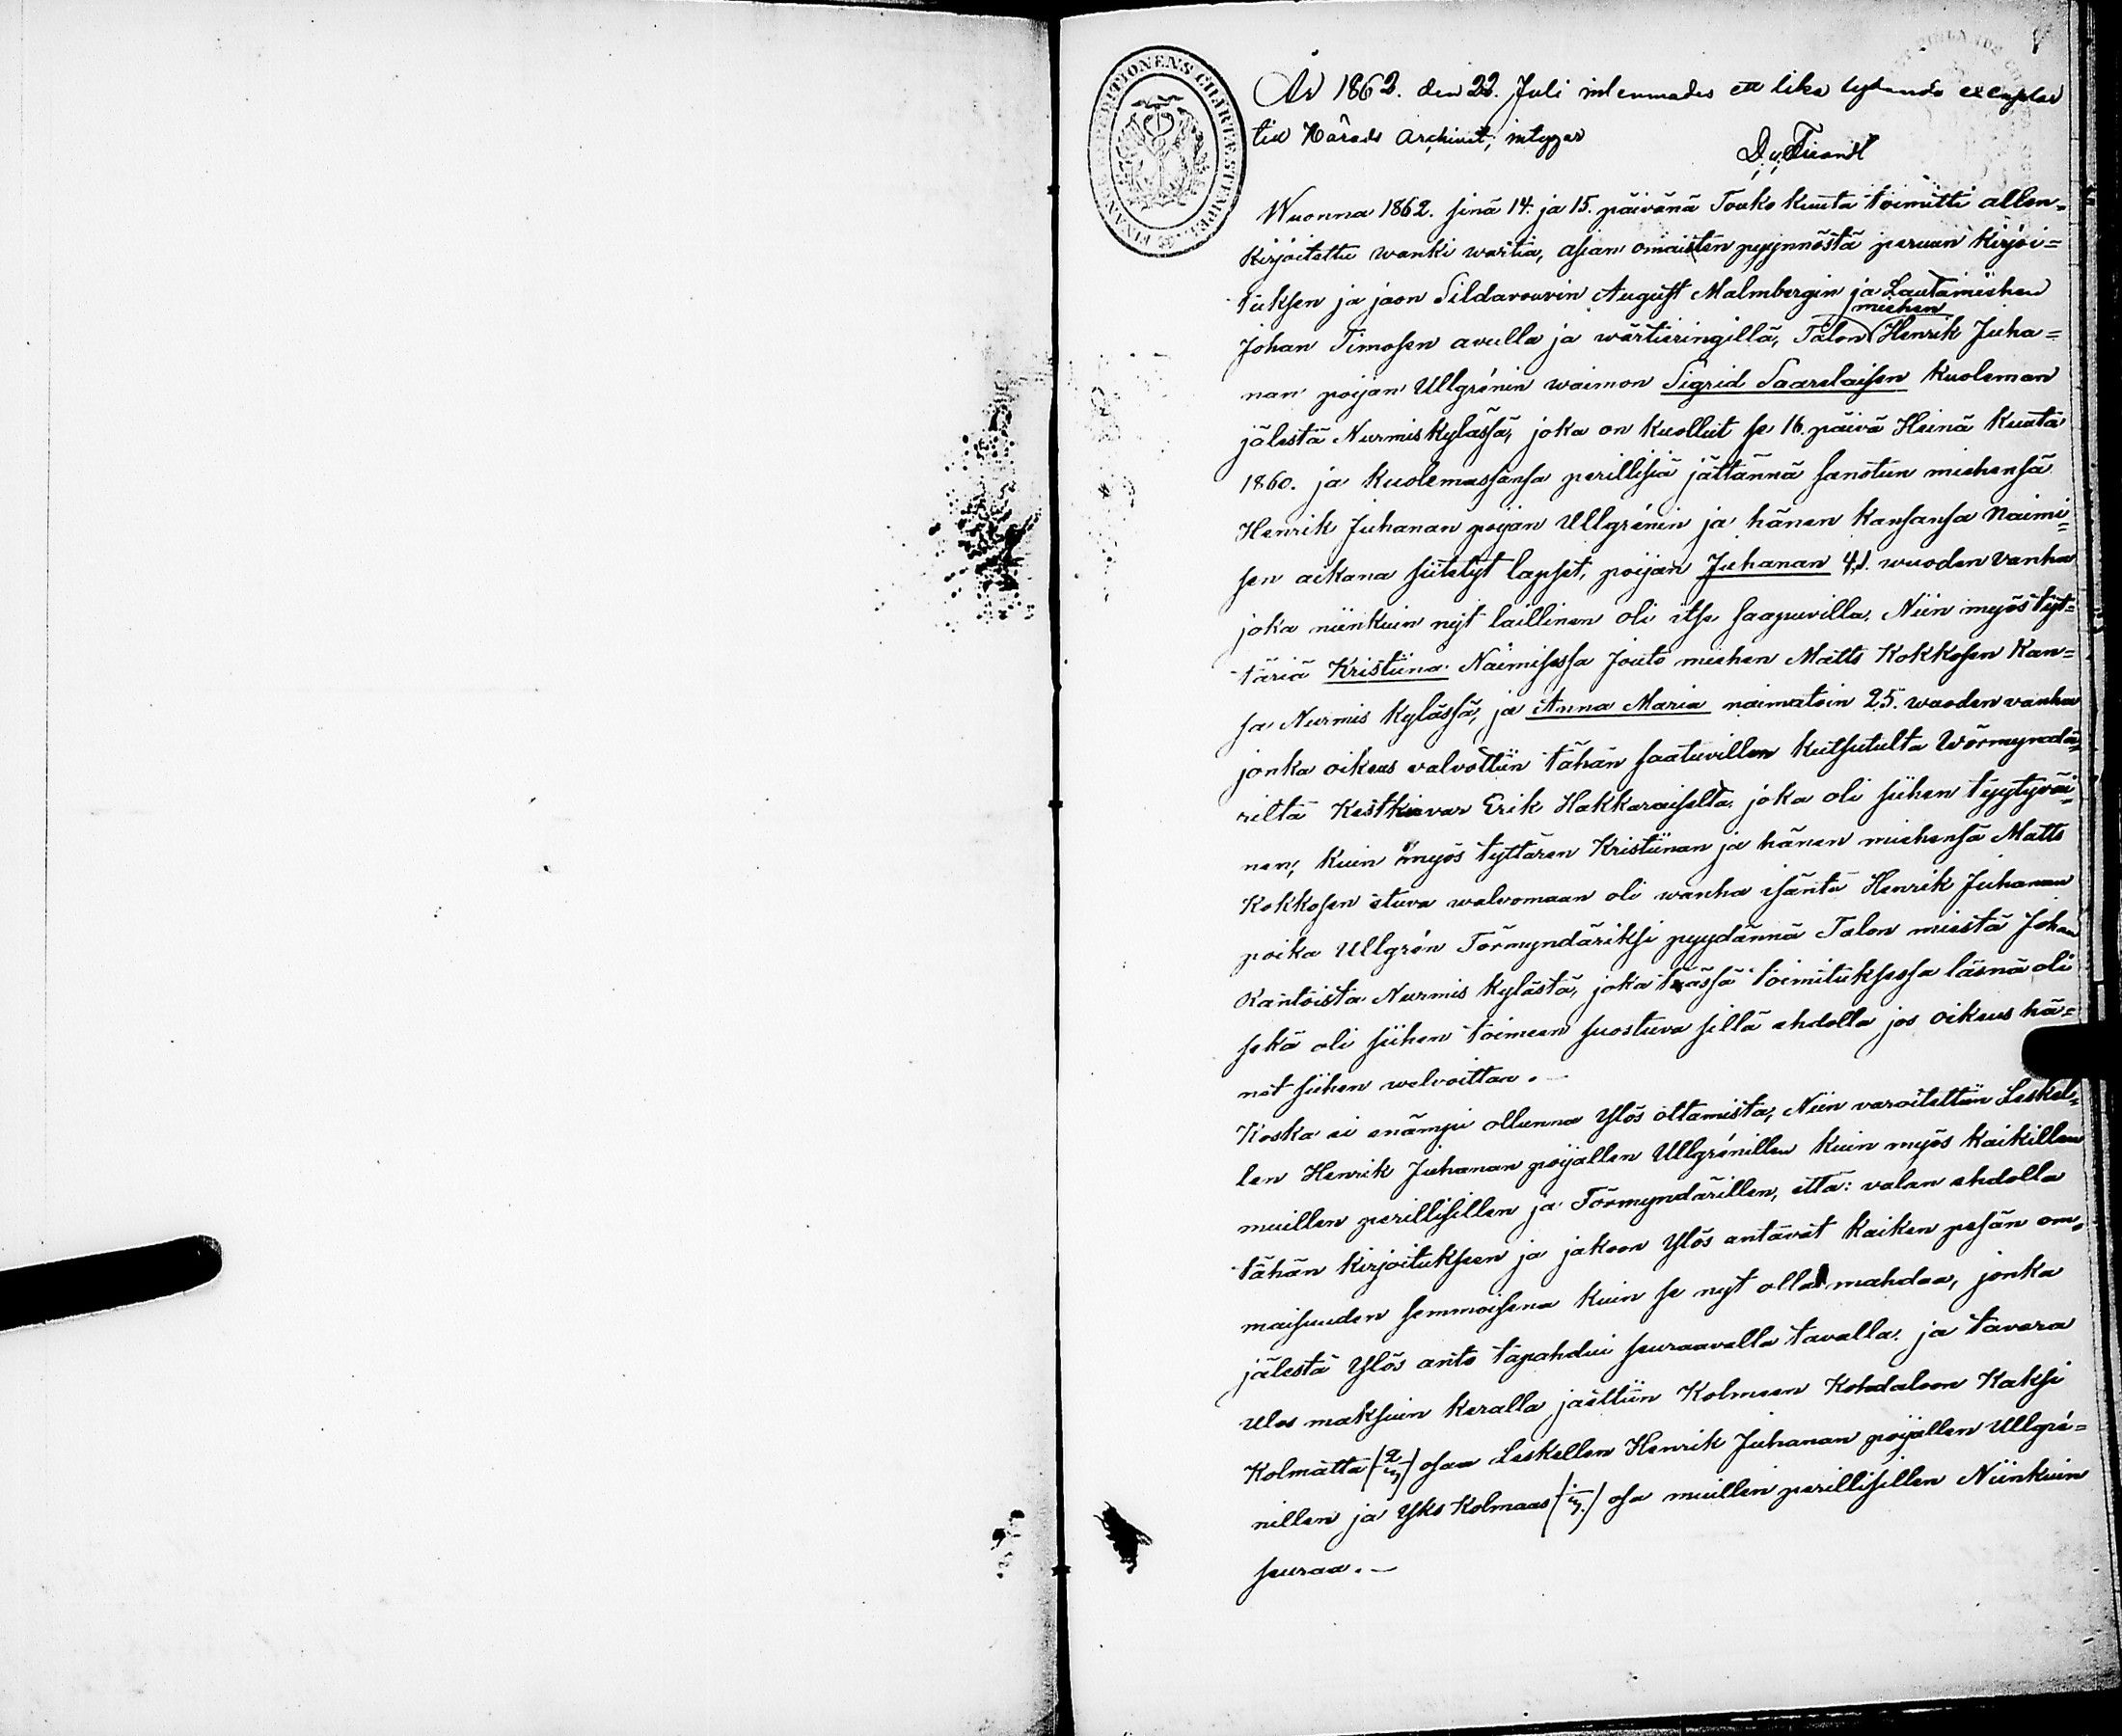 År 1862. den 22. Juli inlemnades ett lika lydande exemplar
till Härads Archivet; intygar
FINANCE EXPEDITIONENS CHARTÆ STEMPEL
Wuonna 1862. sinä 14. ja 15. päivänä Touko kuuta toimitti allen=
kirjoitettu wanki wartia, asian omaisten pyynnöstä perun kirjoi=
tuksen ja jaon Sildavouvin August Malmbergin ja Lautamiehen
miehen
Johan Timosen avulla ja wärtieringillä, Talon Henrik Juha=
nan poijan Ullgrénin waimon Sigrid Saarelaisen kuoleman
jälestä Nurmiskylässä, joka on kuollut se 16. päivä Heinä kuuta
1860. ja kuolemassansa perillisiä jättännä sanotun miehensä
Henrik Juhanan poijan Ullgrénin ja hänen kansansa Naimi=
sen aikana siitetyt lapset, poijan Juhanan 41. wuoden vanha
joka niinkuin nyt laillinen oli itse saapuvilla. Niin myös tyt=
täriä Kristiina Naimisessa Jouto miehen Matts Kokkosen kan=
sa Nurmis kylässä, ja Anna Maria naimatoin 25. wuoden vanha
jonka oikeus valvottiin tähän saatuvillen kutsutulta Wörmyndä=
riltä Kestkievar Erik Hakkaraiselta, joka oli siihen tyytyväi=
nen; kuin myös tyttären Kristiinan ja hänen miehensä Matts
Kokkosen etuva walvomaan oli wanha isäntä Henrik Juhanan
poika Ullgrén Förmyndäriksi pyydännä Talon miestä Johan
Räntöistä Nurmis kylästä, joka tässä toimituksessa läsnä oli
sekä oli siihen toimeen suostuva sillä ehdolla jos oikeus hä=
net siihen welvoittaa. —
Koska ei enämpi ollunna ylös ottamista; Niin varoitettiin Leskel=
len Henrik Juhanan poijallen Ullgrénillen kuin myös kaikillen
muillen perillisillen ja Förmyndärillen, että: valan ehdolla
tähän kirjoitukseen ja jakoon ylös antavat kaiken pesän om=
maisuuden semmoisena kuin se nyt olla mahdaa, jonka
jälestä ylös anto tapahdui seuraavalla tavalla. ja tavara
ulos maksuin keralla jaettiin Kolmeen Kohdaloon Kaksi
Kolmatta (2/3) osaa Leskellen Henrik Juhanan poijallen Ullgré=
nillen ja Yks Kolmaas (1/3.) osa muillen perillisillen Niinkuin
seuraa. —